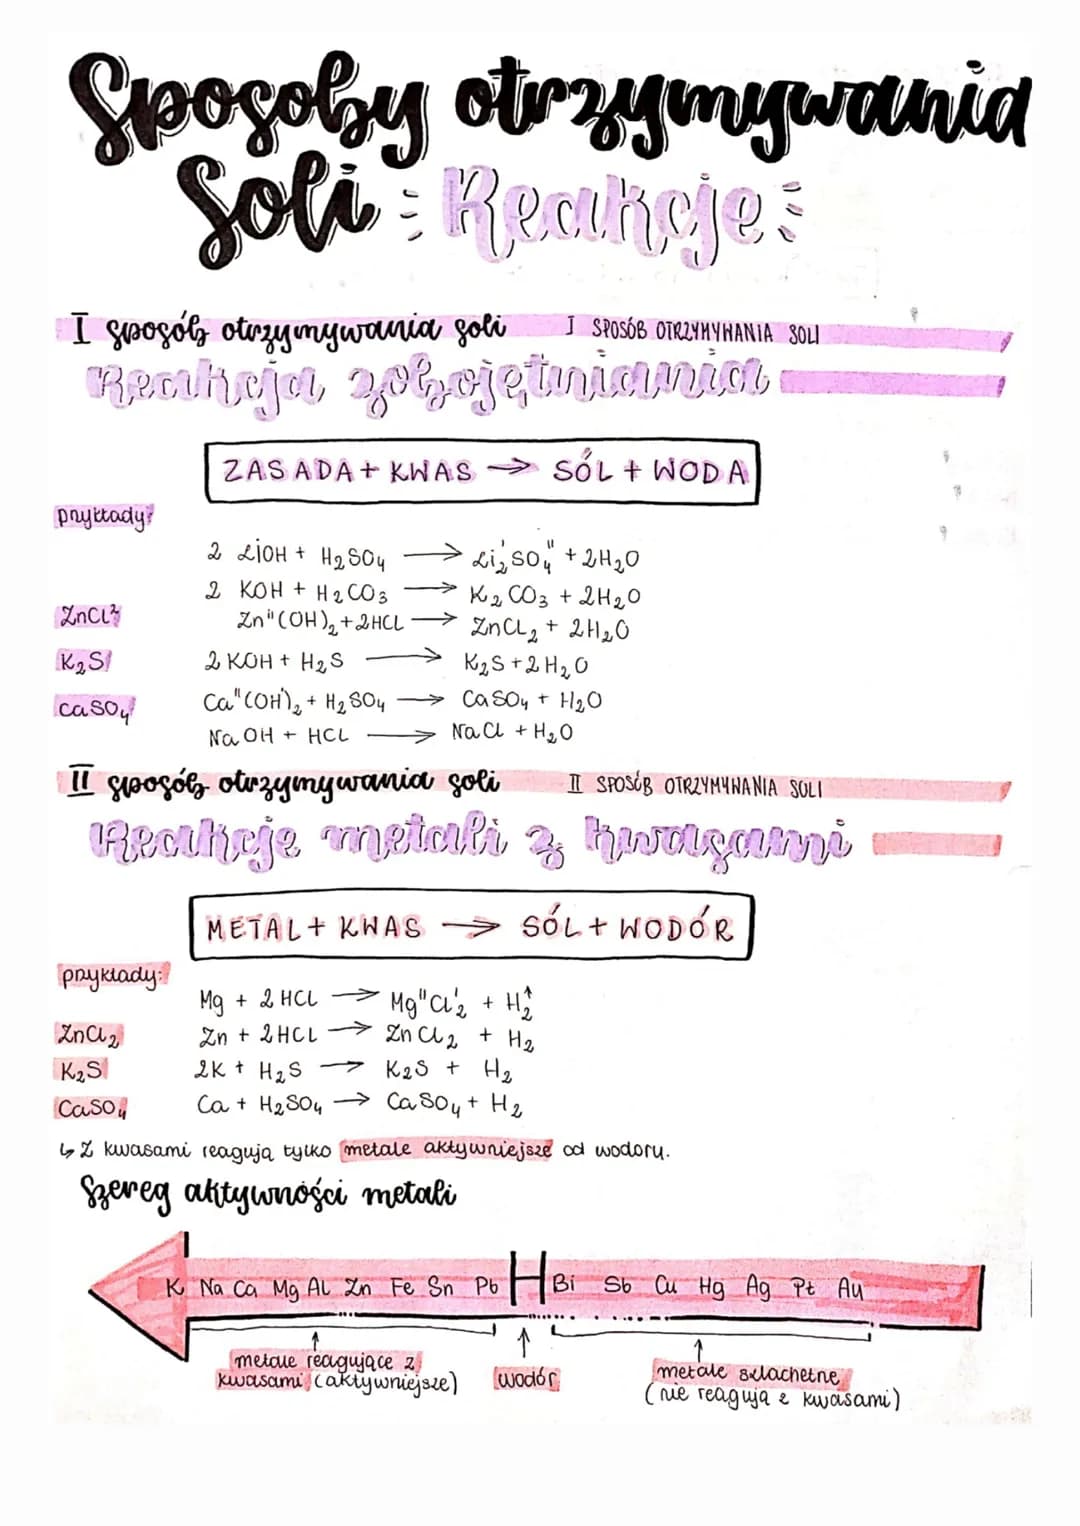 Sposoby otrzymywania
Soli Reakcje
I sposób otrzymywania soli I SPOSÓB OTRZYMYWANIA SOLI
Reakcja zobojętniania
ZASADA + KWAS → SÓL + WODA
przykłady:
2 LiOH + H₂SO₄ → Li₂ᴵSO₄ᴵᴵ + 2H₂O
2 KOH + H₂CO₃ → K₂CO₃ + 2H₂O
ZnCl² Znᴵᴵ(OH)₂ + 2HCL → ZnCL₂ + 2H₂O
K₂S 2 KOH + H₂S → K₂S + 2H₂O
CaSO₄ Caᴵᴵ(OH)ᴵ₂ + H₂SO₄ → CaSO₄ + H₂O
NaOH + HCL → NaCl + H₂O
II sposób otrzymywania soli II SPOSÓB OTRZYMYWANIA SOLI
Reakcje metali z kwasami
METAL + KWAS → SÓL + WODÓR
przykłady:
Mg + 2 HCL → MgᴵᴵClᴵ₂ + H₂↑
ZnCl₂ Zn + 2HCL → ZnCl₂ + H₂
K₂S 2K + H₂S → K₂S + H₂
CaSO₄ Ca + H₂SO₄ → CaSO₄ + H₂
↳ Z kwasami reagują tylko metale aktywniejsze od wodoru.
Szereg aktywności metali
K Na Ca Mg AL Zn Fe Sn Pb H Bi Sb Cu Hg Ag Pt Au
metale reagujące z kwasami (aktywniejsze)
wodór
metale szlachetne (nie reagują z kwasami)